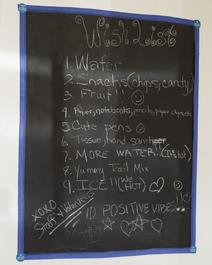 Wish List
1. Water
2. Snacks (chips, candy)
3. Fruit!!
4. Paper, notebooks, pencils, paper clips
5. Cute pens
6. Tissue, hand sanitizer
7. MORE WATER!!
8. Yummy Trail Mix
9. ICE!! (WE HOT)
10 POSITIVE VIBES!!
XOXO
Staff & Volunteers